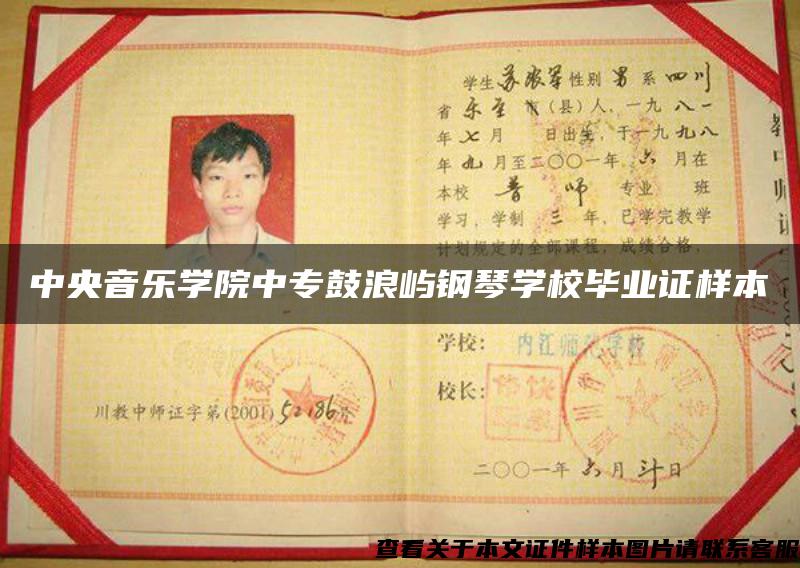 学生 苏 性别 男 系 四川
省 乐至 市(县)人,一九八一
年 七 月 日出生,于一九九八
年 九 月至二〇〇一年 六 月在
本校 普 师 专业 班
学习,学制 三 年,已学完教学
计划规定的全部课程,成绩合格,
中央音乐学院中专鼓浪屿钢琴学校毕业证样本
学校: 内江师范学校
校长:
川教中师证字第(2001)52186号
二〇〇一年 六 月 卅 日
查看关于本文证件样本图片请联系客服